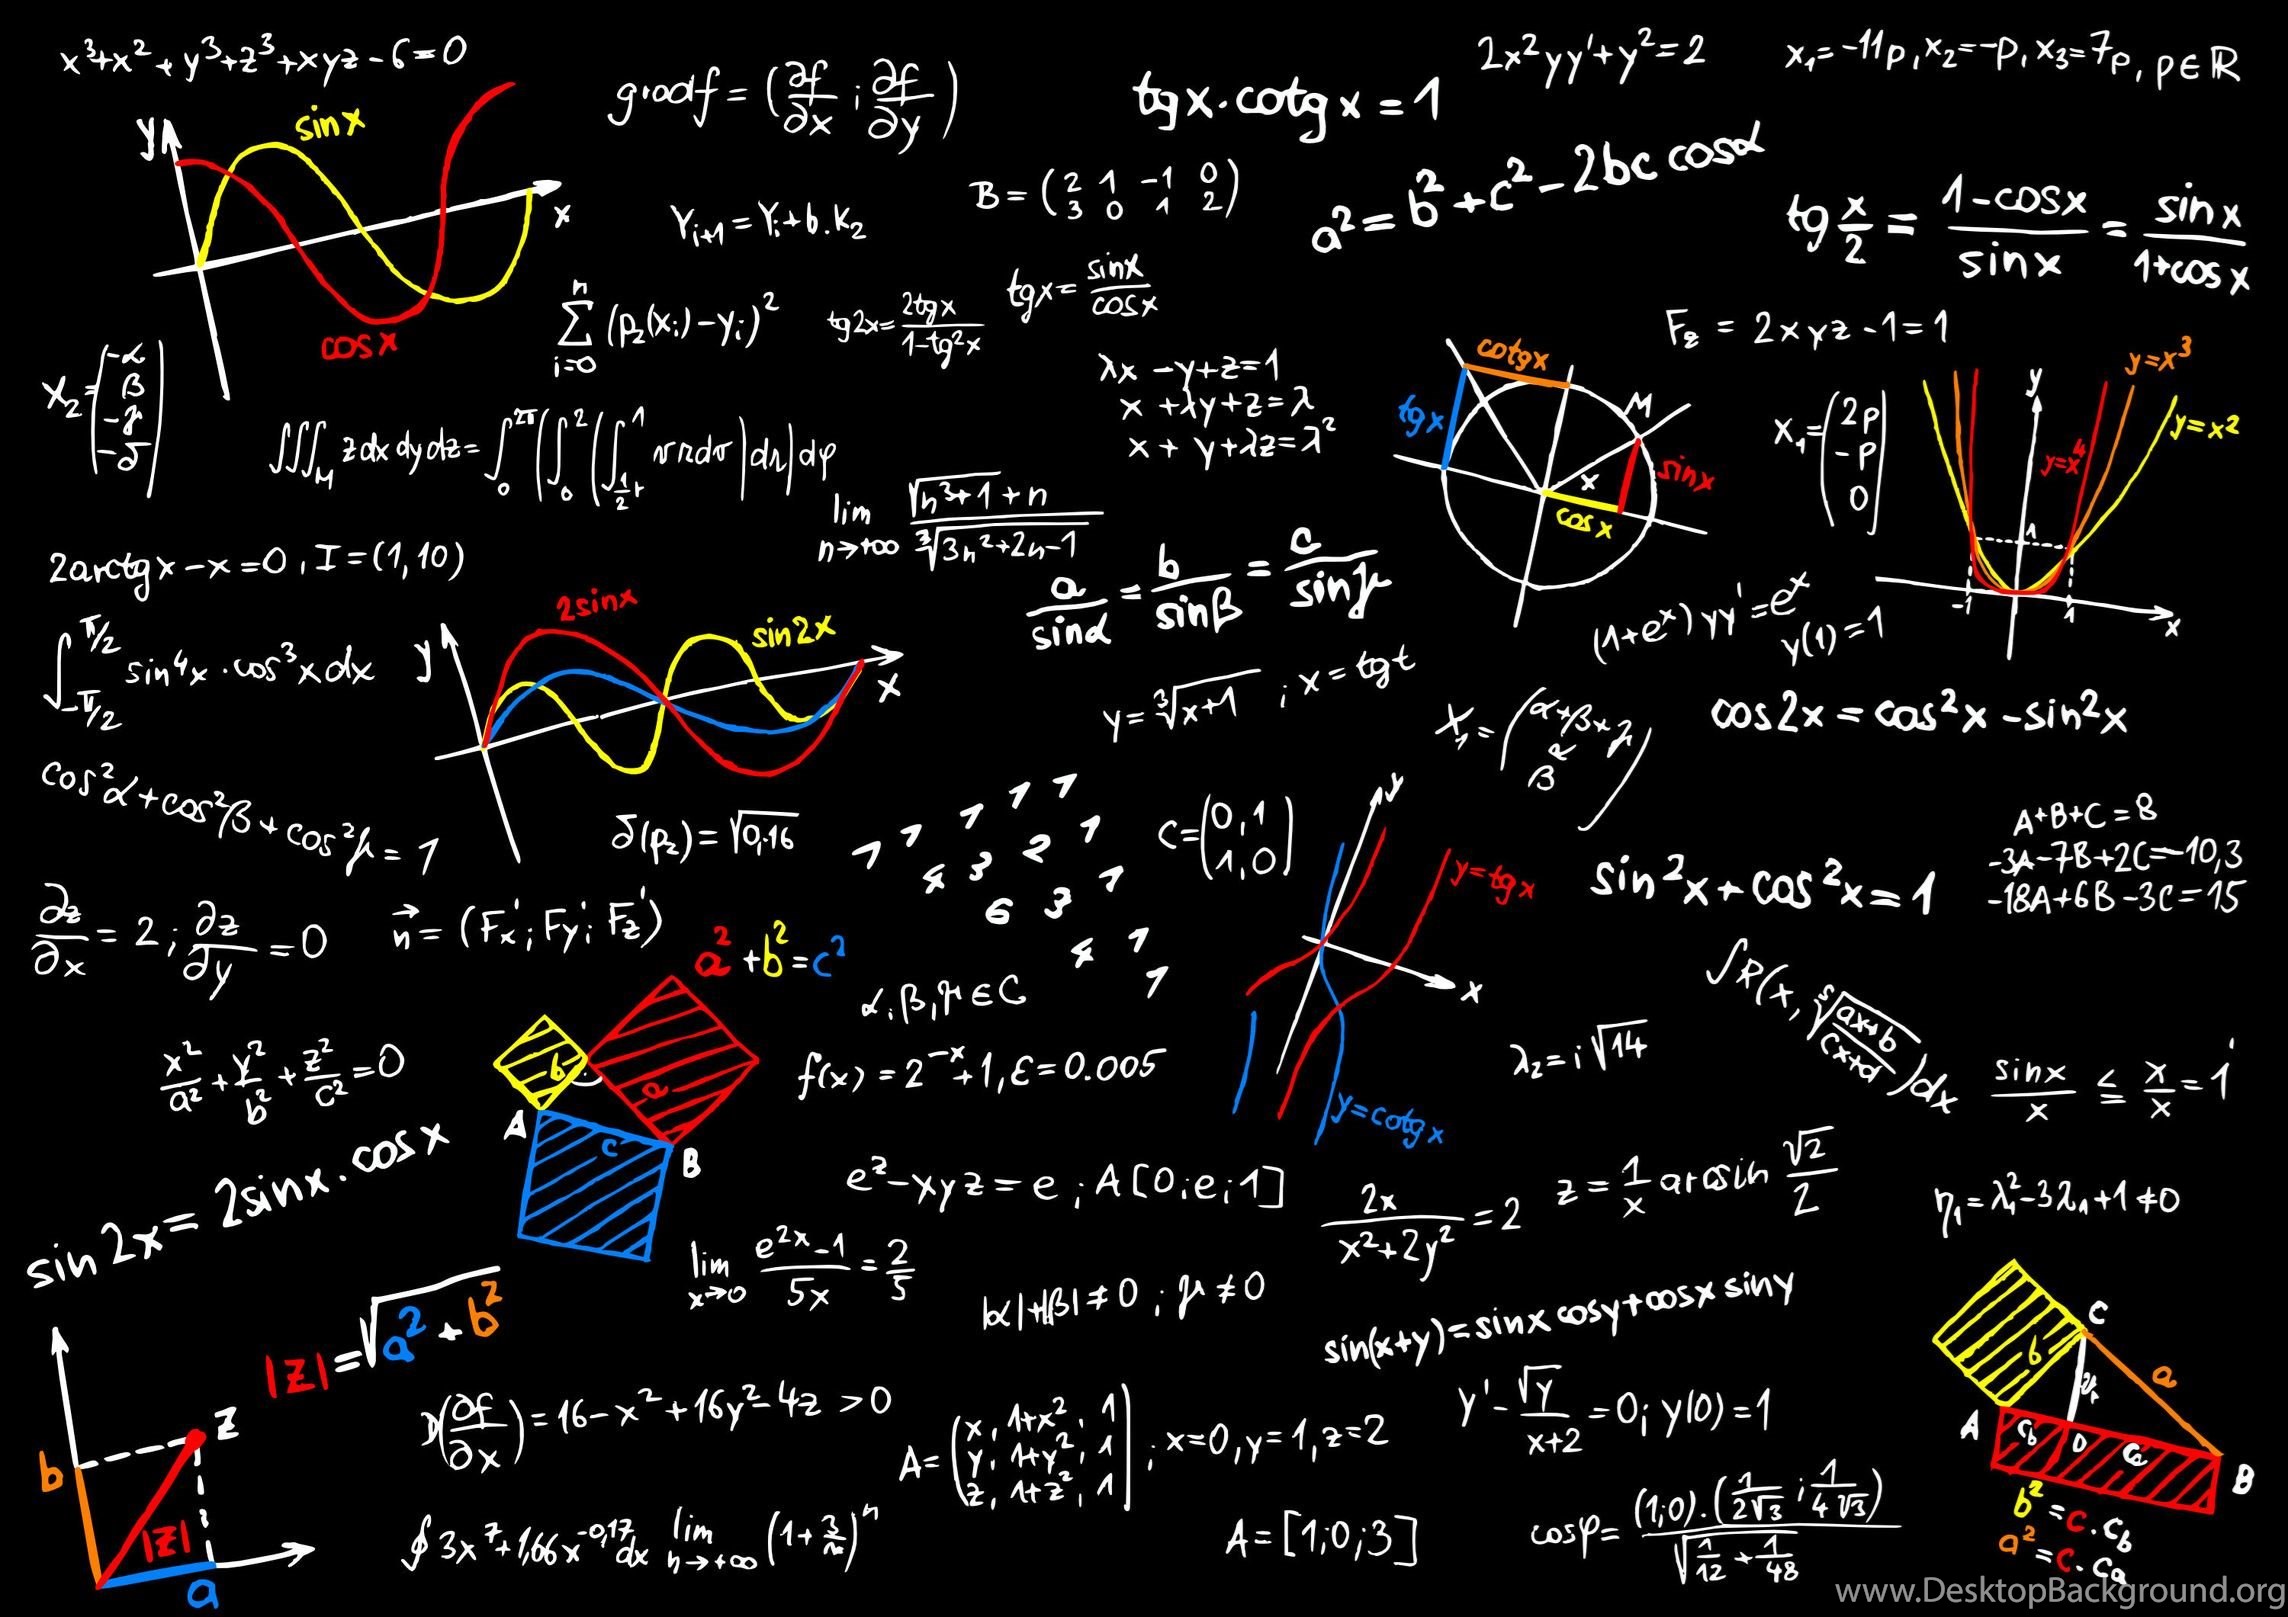 x³+x²+y³+z³+xyz-6=0
grad f = (∂f/∂x ; ∂f/∂y)
tg x · cotg x = 1
2x²yy'+y²=2
x₁=-11p, x₂=-p, x₃=7p, p∈ℝ
y
sin x
x
cos x
Yᵢ₊₁=Yᵢ+b.K₂
B = (2 1 -1 0
3 0 1 2)
a²=b²+c²-2bc cosα
tg x/2 = (1-cos x)/(sin x) = (sin x)/(1+cos x)
∑ᵢ₌₀ⁿ (p₂(xᵢ)-yᵢ)²
tg2x = 2tgx/(1-tg²x)
tgx = sinx/cosx
F_z = 2xyz-1=1
X₂=(-α
β
-γ
-δ)
λx-y+z=1
x+λy+z=λ
x+y+λz=λ²
cotg x
tg x
M
sin x
x
cos x
X₁=(2p
-p
0)
y=x³
y=x²
y=x⁴
y
1
-1
1
x
∭_M z dx dy dz =
lim n→+∞ (√(n³+1)+n)/∛(3n²+2n-1)
2arctgx-x=0, I=(1,10)
a/sinα = b/sinβ = c/sinγ
(1+eˣ)yy'=eˣ
y(1)=1
∫_{-π/2}^{π/2} sin⁴x·cos³x dx
y
2sinx
sin2x
x
y=∛(x+1) ; x=tgt
X₁=(α+β+γ
α
β)
cos2x=cos²x-sin²x
cos²α+cos²β+cos²γ=1
δ(p₂)=√0,16
1 1 1 1 1
4 3 2 1
6 3 1
4 1
1
C=(0,1
1,0)
y
y=tgx
x
y=cotgx
A+B+C=8
-3A-7B+2C=-10,3
-18A+6B-3C=15
sin²x+cos²x=1
∂z/∂x = 2 ; ∂z/∂y = 0
n⃗ = (Fx' ; Fy' ; Fz')
a²+b²=c²
b
a
A
c
B
α,β,γ∈C
f(x)=2⁻ˣ+1, ε=0.005
λ₂=i√14
∫R(x, ⁵√((ax+b)/(cx+d)))dx
sinx/x ≤ x/x = 1
x²/a²+y²/b²+z²/c²=0
sin2x=2sinx·cosx
e²-xyz=e ; A[0;e;1]
2x/(x²+2y²)=2
z=1/x arcsin √2/2
η₁=λ₁²-3λ₁+1≠0
lim x→0 (e²ˣ-1)/5x = 2/5
|α|+|β|≠0 ; γ≠0
sin(x+y)=sinx cosy+cosx siny
|z|=√(a²+b²)
b
z
|z|
a
D(∂f/∂x)=16-x²+16y²-4z >0
A=(x, 1+x², 1
y, 1+y², 1
z, 1+z², 1) ; x=0, y=1, z=2
y'-√y/(x+2)=0; y(0)=1
C
b
a
A
c_b
D
c_a
B
b²=c·c_b
a²=c·c_a
∮3x⁷+1,66x^(-0,17)dx lim n→+∞ (1+3/n)ⁿ
A=[1;0;3]
cosφ = (1;0)·(1/(2√3) ; 1/(4√3)) / √(1/12+1/48)
www.DesktopBackground.org